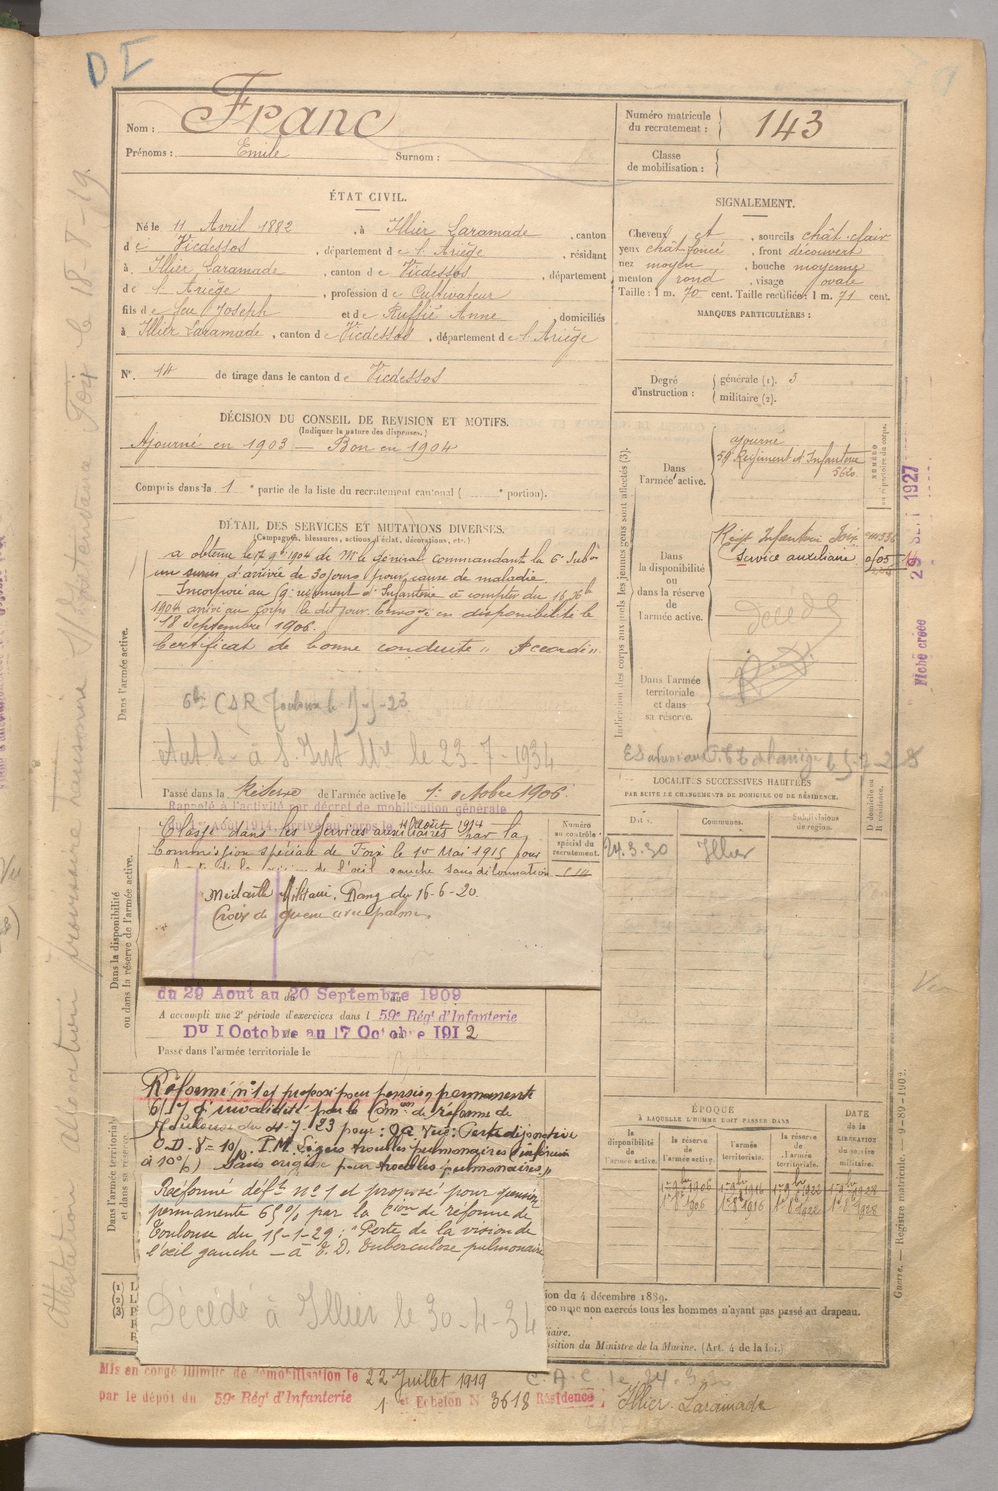 D I
Nom : Franc
Prénoms : Emile Surnom :
Numéro matricule du recrutement : 143
Classe de mobilisation :
ÉTAT CIVIL.
Né le 11 Avril 1882, à Illier Laramade, canton
de Vicdessos, département de l'Ariège, résidant
à Illier Laramade, canton de Vicdessos, département
de l'Ariège, profession de Cultivateur
fils de feu Joseph et de Ruffié Anne, domiciliés
à Illier Laramade, canton de Vicdessos, département de l'Ariège
N°. 14 de tirage dans le canton de Vicdessos
SIGNALEMENT.
Cheveux et, sourcils chât clair
yeux chât foncé, front découvert
nez moyen, bouche moyenne
menton rond, visage ovale
Taille : 1 m. 70 cent. Taille rectifiée : 1 m. 71 cent.
MARQUES PARTICULIÈRES :
Degré d'instruction : générale (1). 3
militaire (2).
DÉCISION DU CONSEIL DE REVISION ET MOTIFS.
(Indiquer la nature des dispenses.)
Ajourné en 1903 — Bon en 1904
Compris dans la 1e partie de la liste du recrutement cantonal ( e portion).
DÉTAIL DES SERVICES ET MUTATIONS DIVERSES.
(Campagnes, blessures, actions d'éclat, décorations, etc.)
Dans l'armée active.
a obtenu le 17 9bre 1904 de Mr le Général commandant la 6e Subon
un sursis d'arrivée de 30 jours pour cause de maladie.
Incorporé au 59e régiment d'Infanterie à compter du 16 Xbre
1904 arrivé au corps le dit jour. Envoyé en disponibilité le
18 Septembre 1906.
Certificat de bonne conduite "Accordé".
Passé dans la Réserve de l'armée active le 1er octobre 1906.
Rappelé à l'activité par décret de mobilisation générale
du 1er Août 1914, arrivé au corps le 4 Août 1914
Classé dans les Services auxiliaires par la
Commission spéciale de Foix le 1er Mai 1915 pour
de l'œil gauche sans déformation
Numéro au contrôle spécial du recrutement.
Dans la disponibilité ou dans la réserve de l'armée active.
Médaille Militaire. Rang du 16-6-20.
Croix de guerre avec palme.
du 29 Aout au 20 Septembre 1909
A accompli une 2e période d'exercices dans l 59e Régt d'Infanterie
Du 1 Octobre au 17 Octobre 1912
Passé dans l'armée territoriale le
Dans l'armée territoriale et dans sa réserve
Réformé n° 1 et proposé pour pension permanente
65% d'invalidité par la Comon de réforme de
Toulouse du 4-7-23 pour :
Réformé déft n° 1 et proposé pour pension
permanente 65% par la Cion de réforme de
Toulouse du 15-1-29 : "Perte de la vision de
l'œil gauche — à T. D. Tuberculose pulmonaire
Décédé à Illier le 30-4-34
Indication des corps auxquels les jeunes gens sont affectés (3).
Dans l'armée active.
ajourné
59 Régiment d'Infanterie
5620
NUMÉRO au répertoire du corps.
Dans la disponibilité ou dans la réserve de l'armée active.
Régt Infanterie Foix
Service auxiliaire
décédé
Dans l'armée territoriale et dans sa réserve.
Fiche créée 29 SEPT 1927
LOCALITÉS SUCCESSIVES HABITÉES
PAR SUITE DE CHANGEMENTS DE DOMICILE OU DE RÉSIDENCE.
Dates. Communes. Subdivisions de région. D. domicile ou R. résidence.
24.3.30 Illier
ÉPOQUE
À LAQUELLE L'HOMME DOIT PASSER DANS
la disponibilité de l'armée active. la réserve de l'armée active. l'armée territoriale. la réserve de l'armée territoriale.
DATE de la LIBÉRATION du service militaire.
Guerre. — Registre matricule. — 9-89-1902.
ion du 4 décembre 1889.
non exercés tous les hommes n'ayant pas passé au drapeau.
iaire.
osition du Ministre de la Marine. (Art. 4 de la loi.)
Mis en congé illimité de démobilisation le 22 Juillet 1919
par le dépôt du 59e Régt d'Infanterie 1 er Echelon N° 3618 Résidence : Illier-Laramade